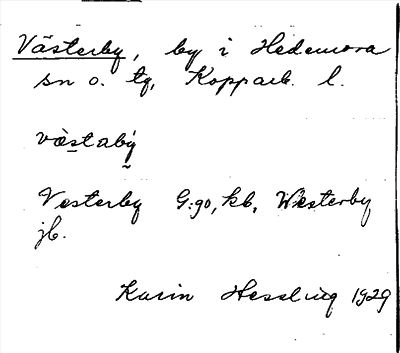 Västerby, by i Hedemora
sn o. tg, Kopparb. l.
västaby
Vesterby G:90, kb, Westerby
jb.
Karin Hessling 1929